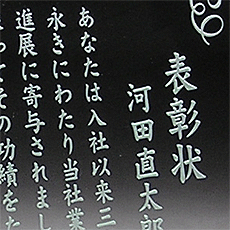 表彰状
河田直太郎
あなたは入社以来三
永きにわたり当社業
進展に寄与されまし
てその功績をた